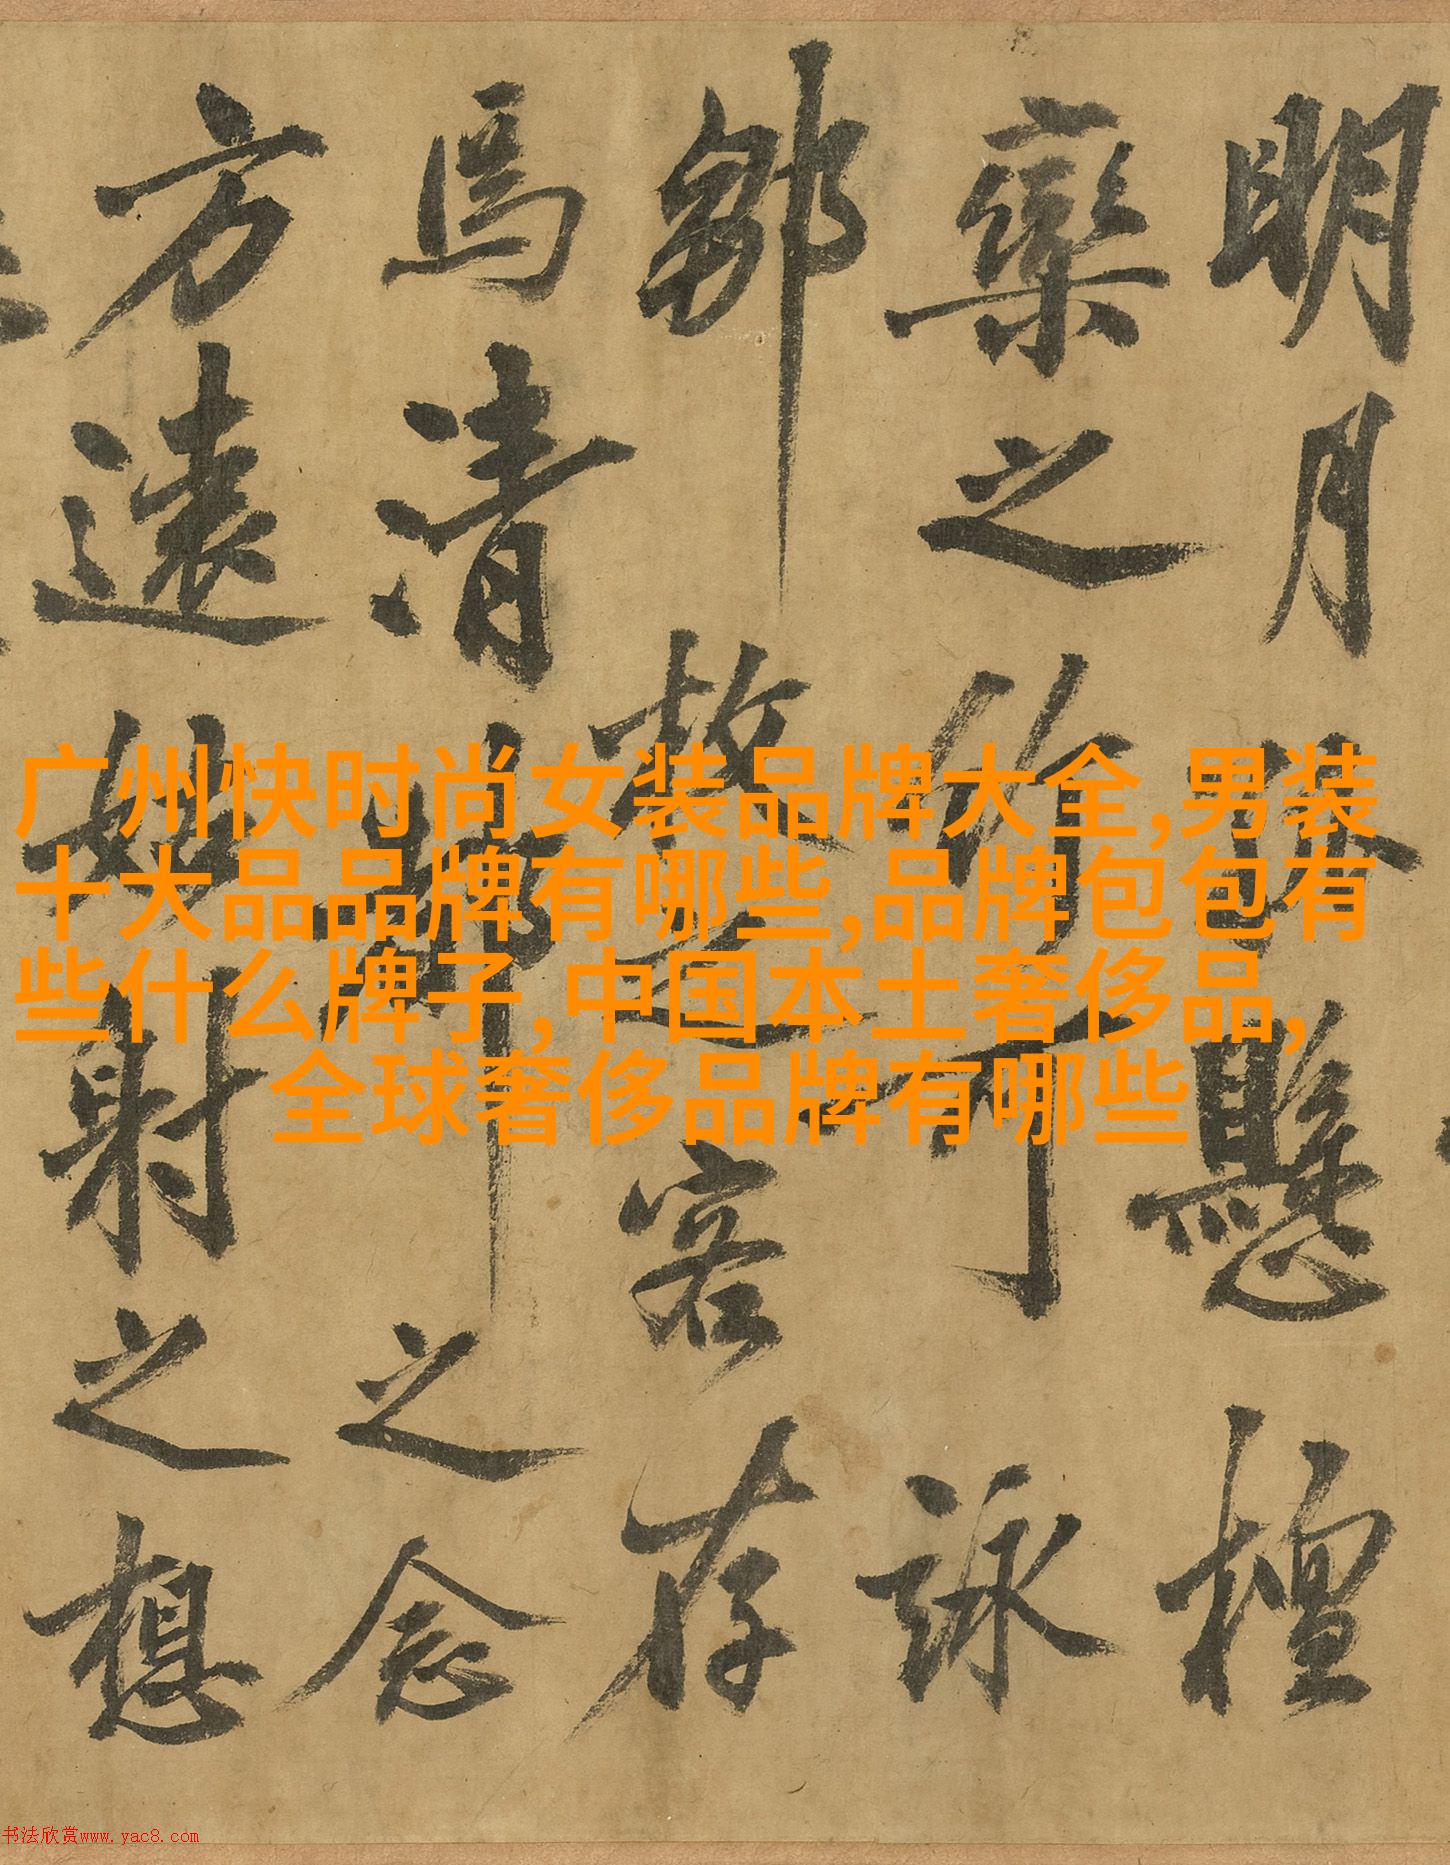 明月懸檀
欒之竹可詠
鄒枚之客存
焉清之念
方遠姑射之想
广州快时尚女装品牌大全,男装
十大品品牌有哪些,品牌包包有
些什么牌子,中国本土奢侈品,
全球奢侈品牌有哪些
书法欣赏www.yac8.com